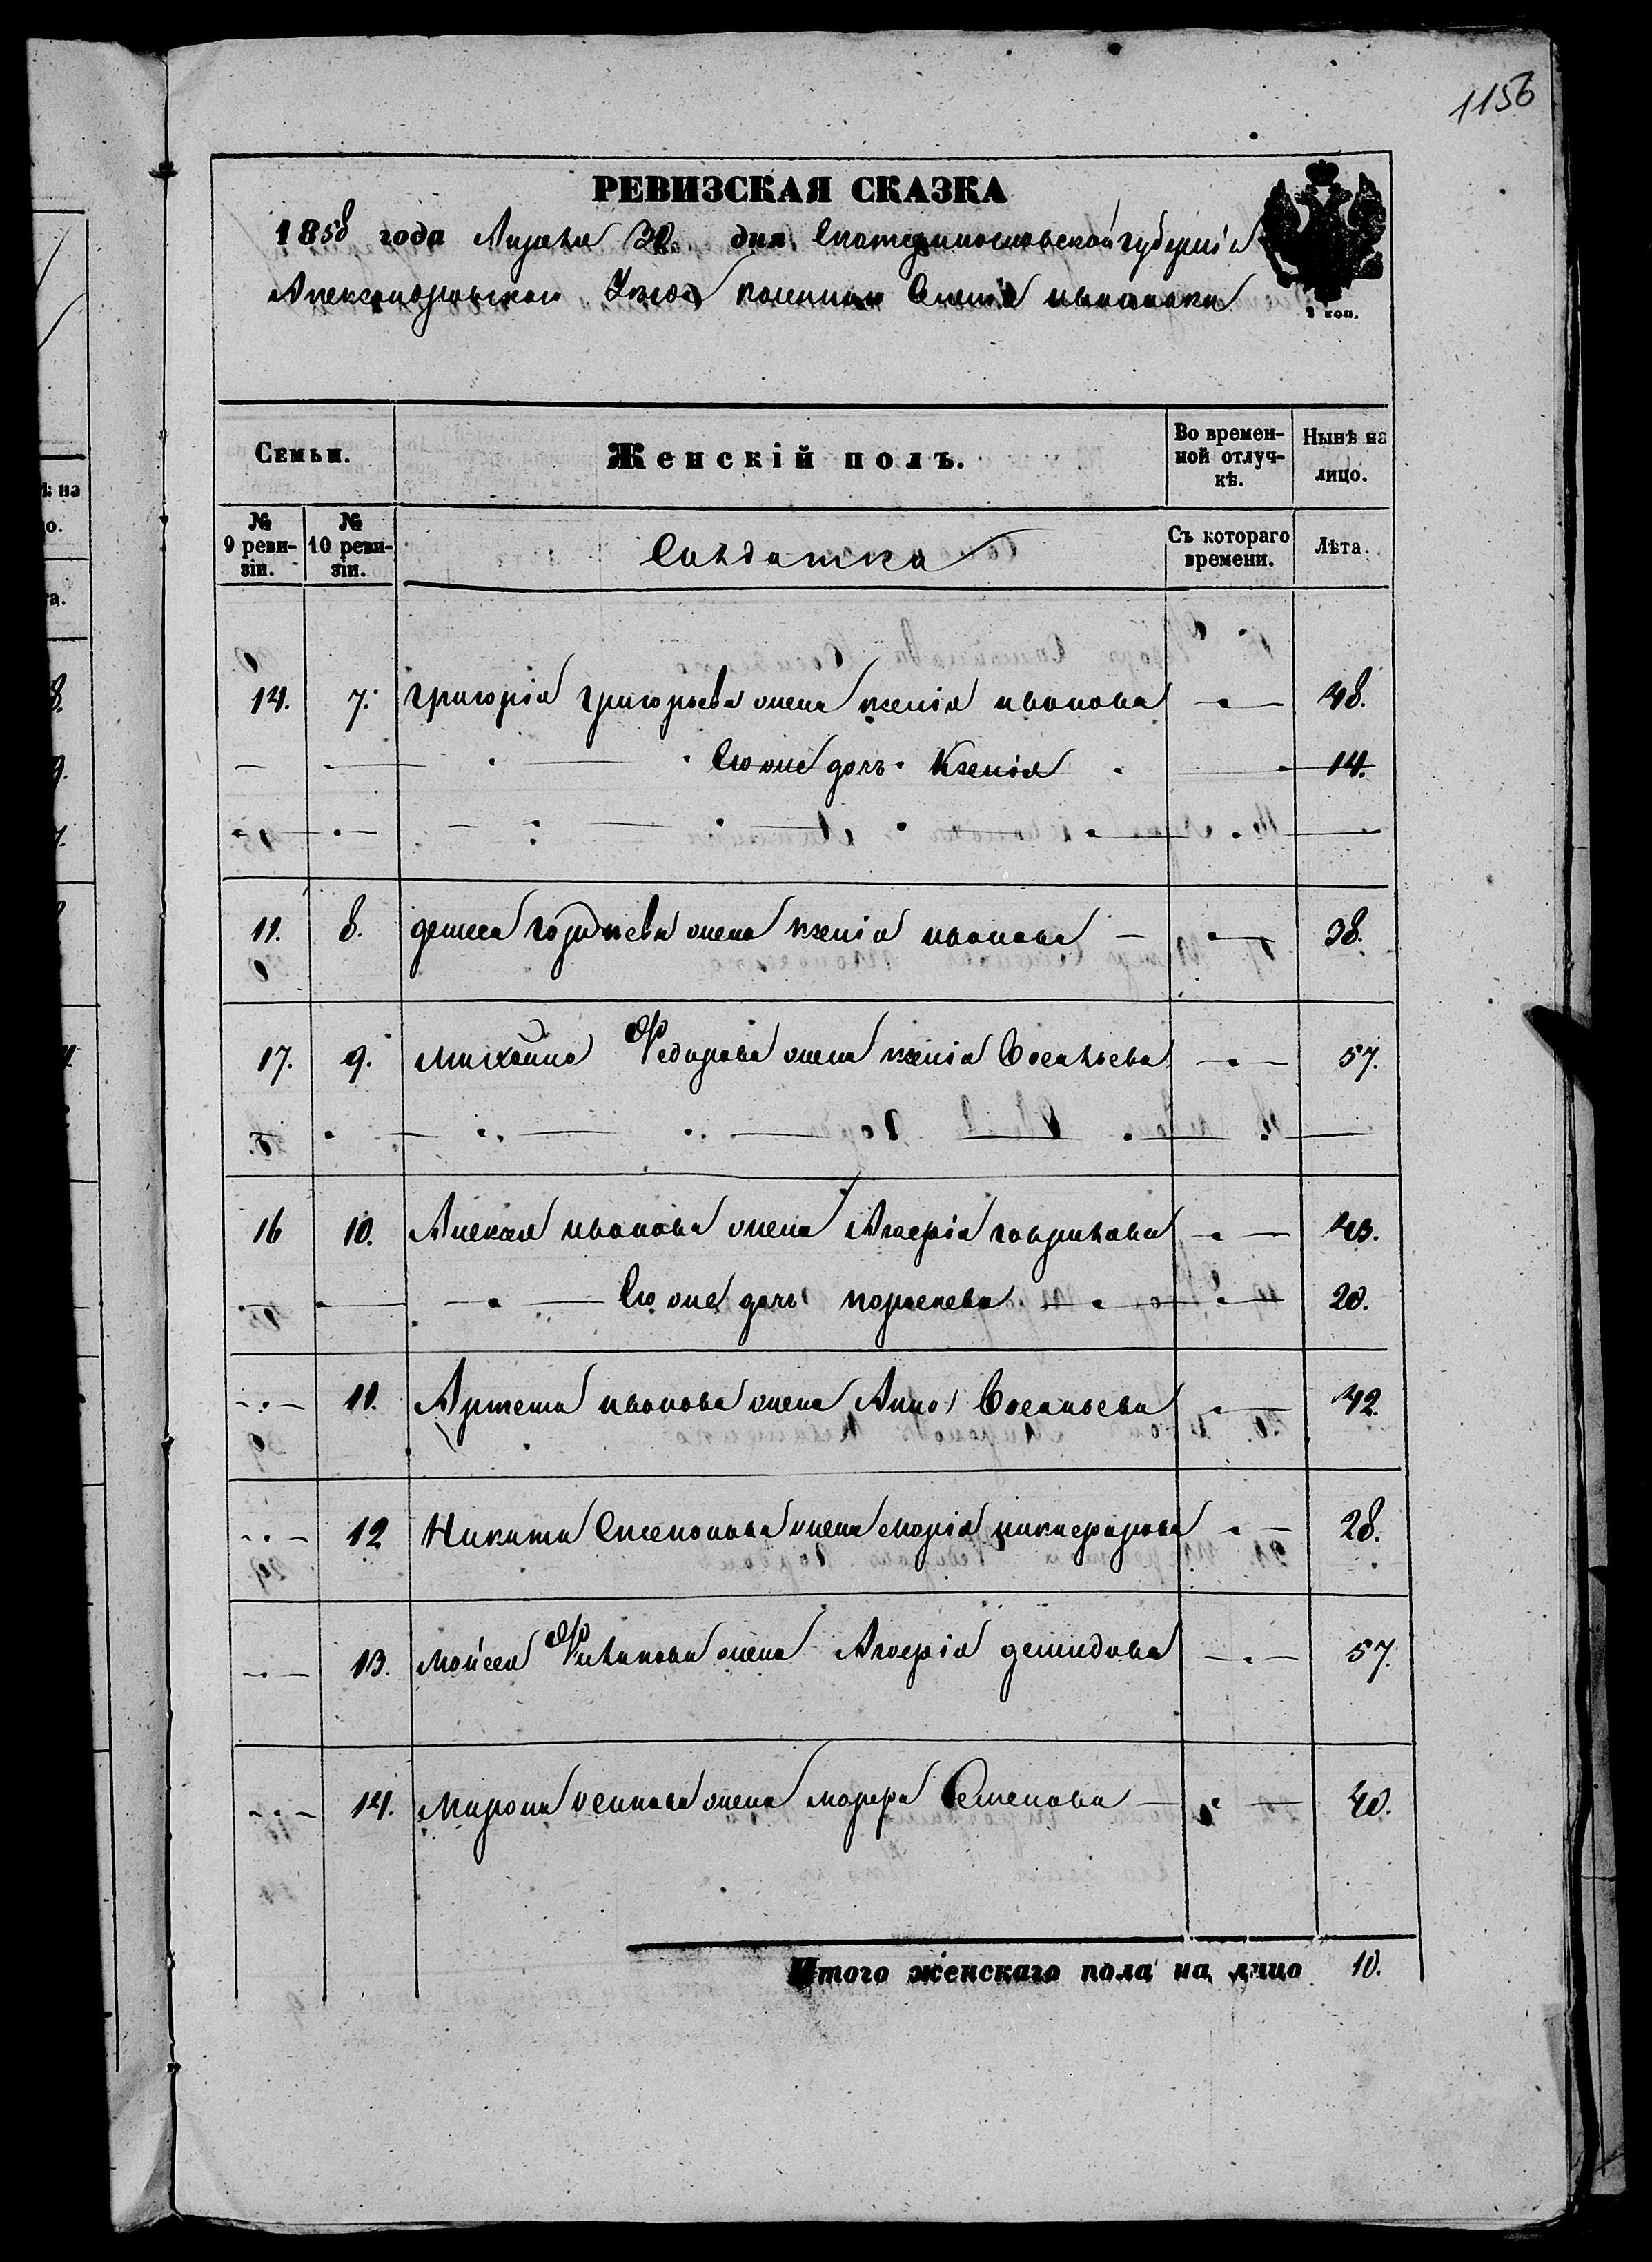 1156
РЕВИЗСКАЯ СКАЗКА
1858 года Апреля дня Екатеринославской губерніи
Александровскаго Уезда казенного Селенія ивановки
2 коп.
Семьи. Женскій полъ. Во времен-ной отлуч-кѣ. Нынѣ на лицо.
№ 9 реви-зіи. № 10 реви-зіи. Салдатка Съ котораго времени. Лѣта.
14. 7. григорія григорьева жена ксенія иванова 48.
Его же дочь Ксенія 14.
11. 8. демида жена ксенія иванова 38.
17. 9. михайла Федорова жена ксенія Савельева 57.
16 10. Алексея иванова жена гаврилова 43.
Его же дочь 20.
11. Артема иванова жена Анна Савельева 42.
12 Никита Семенова жена марія никифорова 28.
13. мойсея Филипова жена демидова 57.
14. Мирона осипова жена марфа Семенова 40.
Итого женскаго пола на лицо 10.
ѣ на
о.
та.